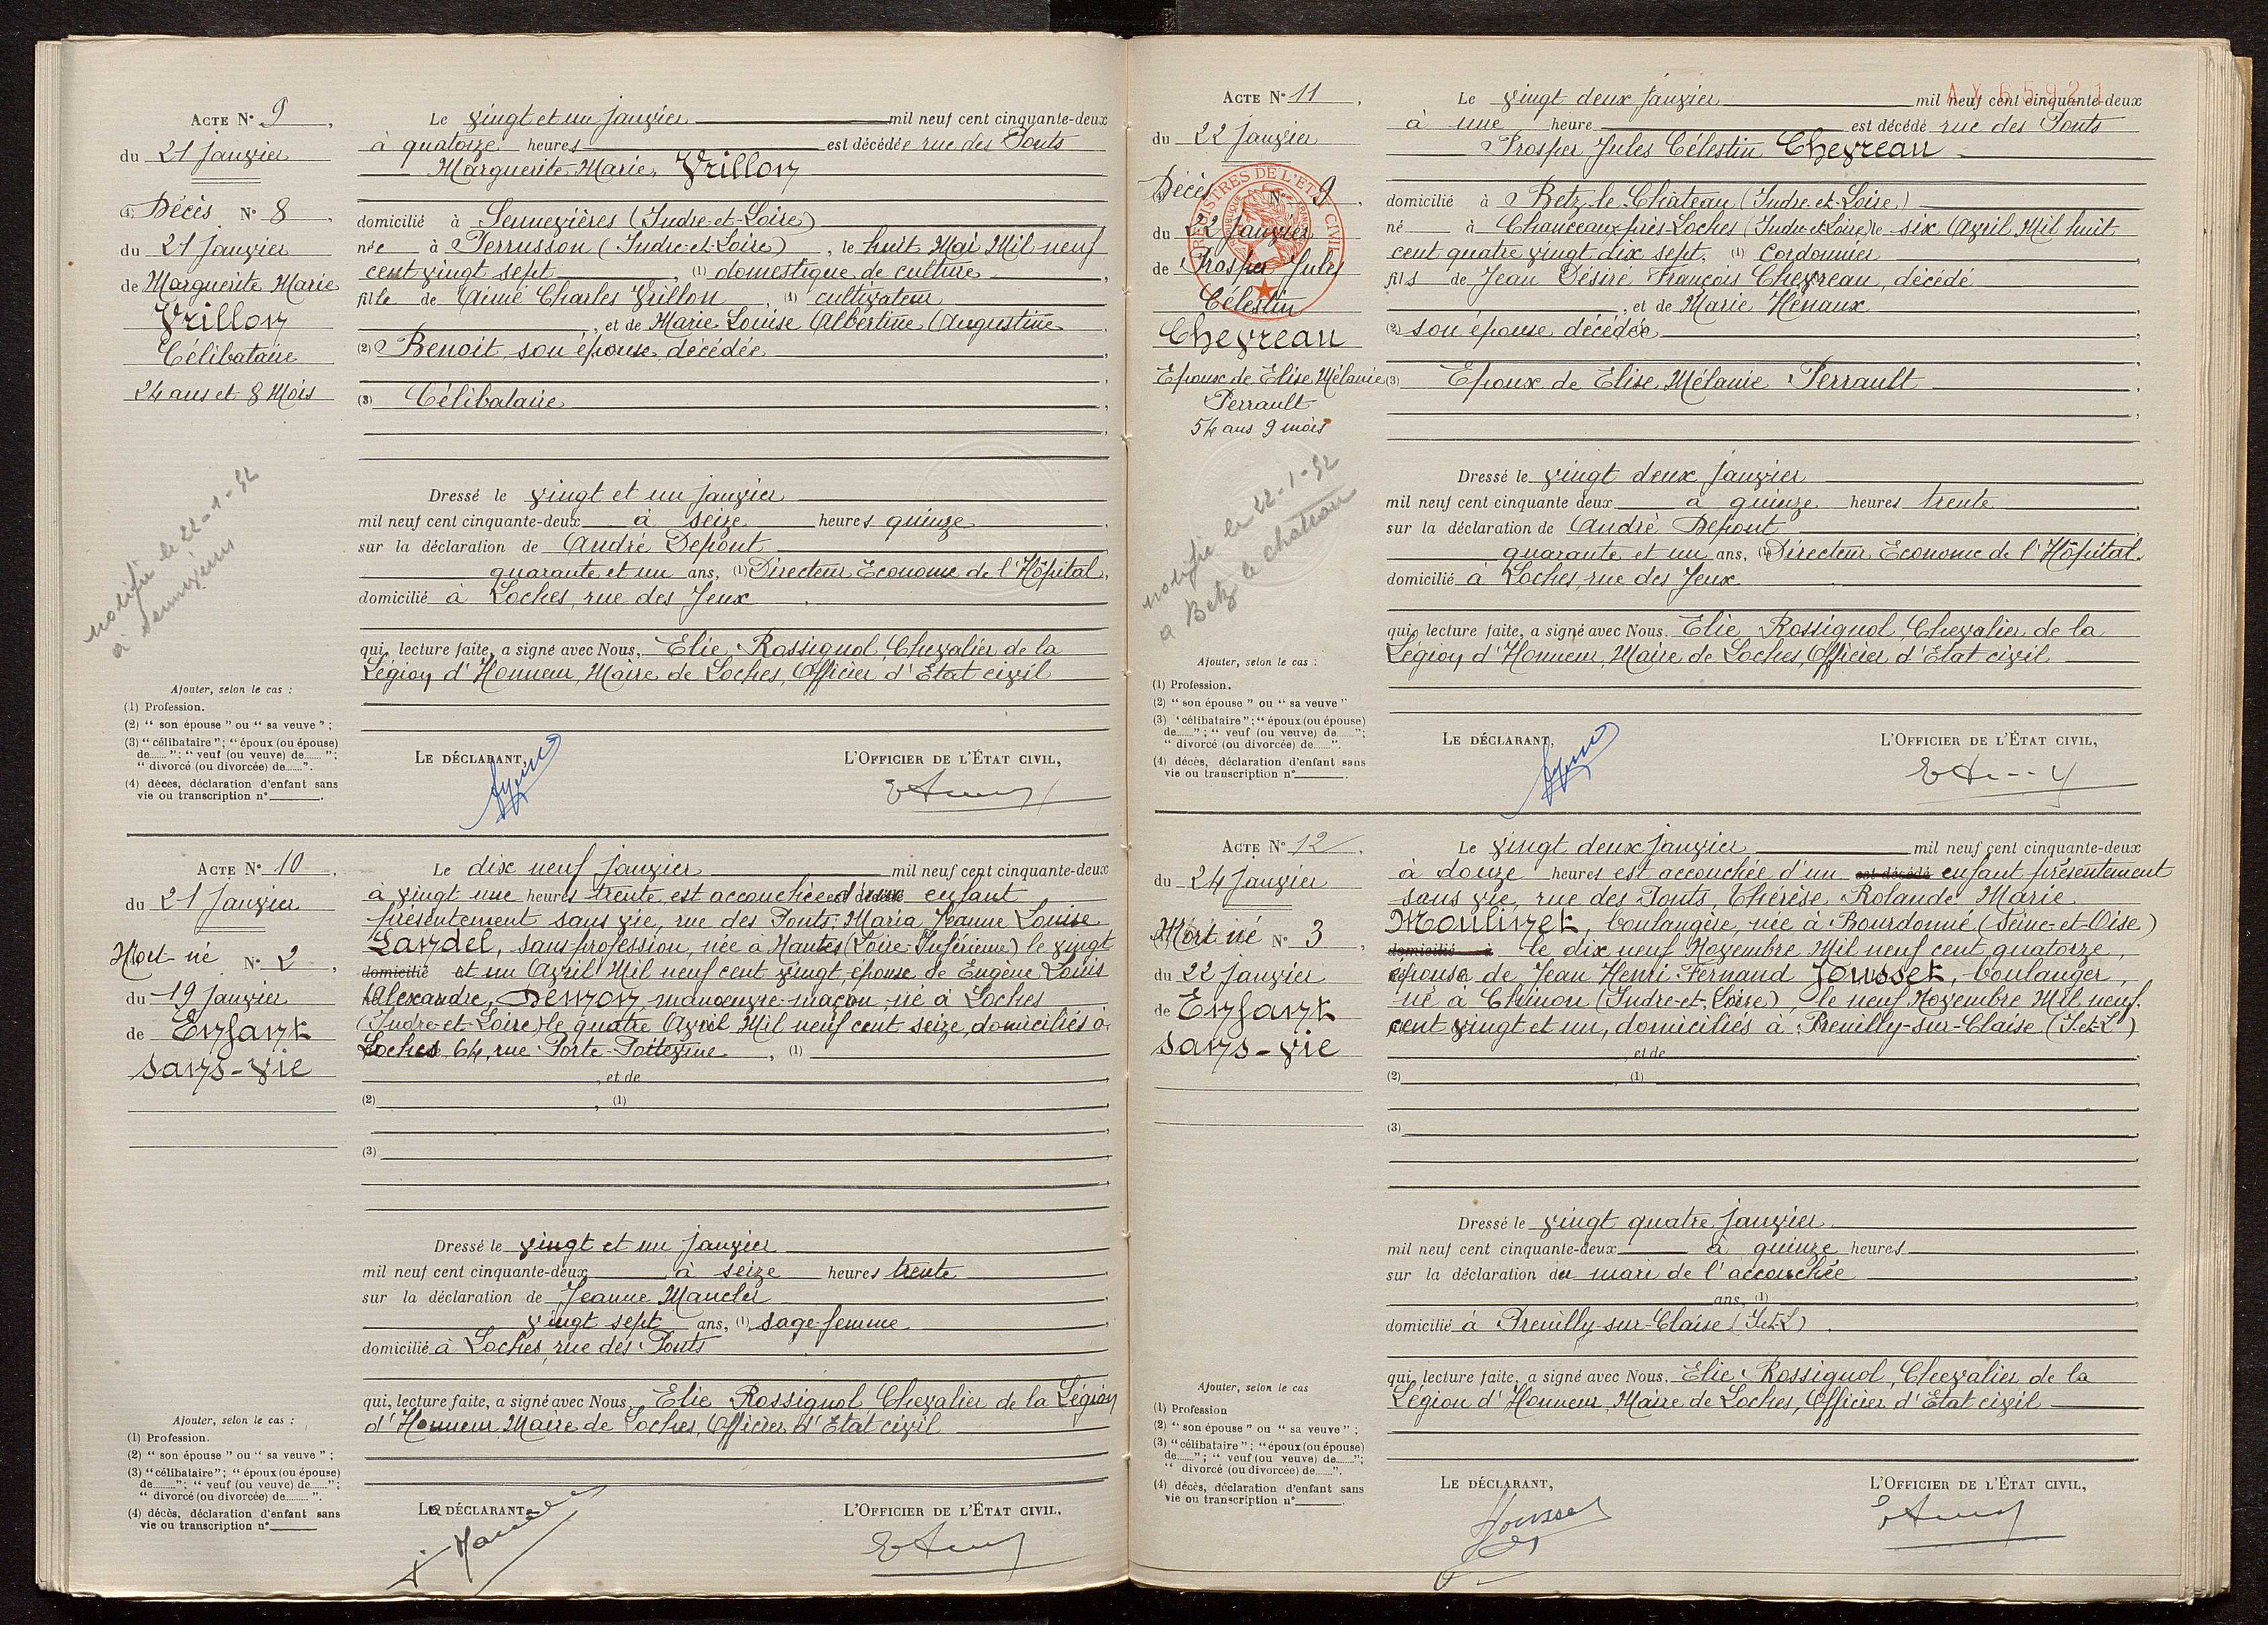 ACTE N° 9
du 21 Janvier
(4) Décès N° 8
du 21 Janvier
de Marguerite Marie
Vrillon
Célibataire
24 ans et 8 Mois
notifié le 22-1-52
à Sennevières
Le vingt et un janvier mil neuf cent cinquante-deux
à quatorze heures est décédée rue des Ponts
Marguerite Marie Vrillon
domicilié à Sennevières (Indre-et-Loire)
née à Perrusson (Indre-et-Loire), le huit Mai Mil neuf
cent vingt sept, (1) domestique de culture,
fille de Aimé Charles Vrillon, (1) cultivateur
, et de Marie Louise Albertine Augustine
(2) Benoit, son épouse décédée,
(3) Célibataire,
Dressé le vingt et un janvier
mil neuf cent cinquante-deux à seize heures quinze,
sur la déclaration de André Depont
quarante et un ans, (1) Directeur Econome de l'Hôpital,
domicilié à Loches, rue des Jeux.
qui, lecture faite, a signé avec Nous, Elie Rossignol, Chevalier de la
Légion d'Honneur, Maire de Loches, Officier d'Etat civil
Ajouter, selon le cas :
(1) Profession.
(2) " son épouse " ou " sa veuve " ;
(3) " célibataire " ; " époux (ou épouse)
de...... " ; " veuf (ou veuve) de...... " ;
" divorcé (ou divorcée) de...... ".
(4) décès, déclaration d'enfant sans
vie ou transcription n°
LE DÉCLARANT,
L'OFFICIER DE L'ÉTAT CIVIL,
ACTE N° 10
du 21 Janvier
Mort-né N° 2
du 19 Janvier
de Enfant
sans-vie
Le dix neuf janvier mil neuf cent cinquante-deux
à vingt une heures trente, est accouchée d'un enfant
présentement sans vie, rue des Ponts, Maria Jeanne Louise
Landel, sans profession, née à Nantes (Loire-Inférieure) le vingt
domicilié et un Avril Mil neuf cent vingt, épouse de Eugène Louis
Alexandre, Denzon manoeuvre-maçon né à Loches
(Indre-et-Loire) le quatre Avril Mil neuf cent seize, domiciliés à
Loches 64, rue Porte-Poitevine, (1)
, et de
(2) , (1)
(3)
Dressé le vingt et un janvier
mil neuf cent cinquante-deux à seize heures trente
sur la déclaration de Jeanne Mancler
vingt sept ans, (1) sage-femme
domicilié à Loches, rue des Ponts
qui, lecture faite, a signé avec Nous, Elie Rossignol Chevalier de la Légion
d'Honneur, Maire de Loches, Officier d'Etat civil
Ajouter, selon le cas :
(1) Profession.
(2) " son épouse " ou " sa veuve " ;
(3) " célibataire " ; " époux (ou épouse)
de...... " ; " veuf (ou veuve) de...... " ;
" divorcé (ou divorcée) de...... ".
(4) décès, déclaration d'enfant sans
vie ou transcription n°
La DÉCLARANTE
L'OFFICIER DE L'ÉTAT CIVIL.
ACTE N° 11
du 22 Janvier
Décès N° 9
du 22 Janvier
de Prosper Jules
Célestin
Chevreau
Epoux de Elise Mélanie
Perrault
54 ans 9 mois
REGISTRES DE L'ETAT CIVIL
notifié le 22-1-52
a Betz le chateau
Le vingt deux janvier mil neuf cent cinquante-deux
à une heure est décédé rue des Ponts
Prosper Jules Célestin Chevreau
domicilié à Betz-le-Château (Indre-et-Loire)
né à Chanceaux-près-Loches (Indre-et-Loire) le six Avril Mil huit
cent quatre vingt dix sept, (1) Cordonnier
fils de Jean Désiré François Chevreau, décédé
, et de Marie Hénaux
(2) son épouse décédée
(3) Epoux de Elise Mélanie Perrault
Dressé le vingt deux janvier
mil neuf cent cinquante deux à quinze heures trente
sur la déclaration de André Depont
quarante et un ans, (1) Directeur Econome de l'Hôpital.
domicilié à Loches, rue des Jeux
qui, lecture faite, a signé avec Nous, Elie Rossignol, Chevalier de la
Légion d'Honneur, Maire de Loches, Officier d'Etat civil
Ajouter, selon le cas :
(1) Profession.
(2) " son épouse " ou " sa veuve "
(3) " célibataire " ; " époux (ou épouse)
de...... " ; " veuf (ou veuve) de...... " ;
" divorcé (ou divorcée) de...... ".
(4) décès, déclaration d'enfant sans
vie ou transcription n°
LE DÉCLARANT,
L'OFFICIER DE L'ÉTAT CIVIL,
ACTE N° 12
du 24 Janvier
Mort né N° 3
du 22 Janvier
de Enfant
sans-vie
Le vingt deux janvier mil neuf cent cinquante-deux
à douze heures est accouchée d'un est décédé enfant présentement
sans vie, rue des Ponts, Thérèse Rolande Marie
Moulinet, boulangère, née à Bourdonné (Seine-et-Oise)
domicilié à le dix neuf Novembre Mil neuf cent quatorze,
épouse de Jean Henri Fernand Jousset, boulanger,
né à Chinon (Indre-et-Loire), le neuf Novembre Mil neuf
cent vingt et un, domiciliés à Preuilly-sur-Claise (I.et.L)
, et de
(2) (1)
(3)
Dressé le vingt quatre janvier
mil neuf cent cinquante-deux à quinze heures
sur la déclaration du mari de l'accouchée
ans, (1)
domicilié à Preuilly-sur-Claise (I.et.L).
qui, lecture faite, a signé avec Nous, Elie Rossignol, Chevalier de la
Légion d'Honneur, Maire de Loches, Officier d'Etat civil
Ajouter, selon le cas
(1) Profession
(2) " son épouse " ou " sa veuve " ;
(3) " célibataire " ; " époux (ou épouse)
de...... " ; " veuf (ou veuve) de...... " ;
" divorcé (ou divorcée) de...... ".
(4) décès, déclaration d'enfant sans
vie ou transcription n°
LE DÉCLARANT,
Jousset
L'OFFICIER DE L'ÉTAT CIVIL,